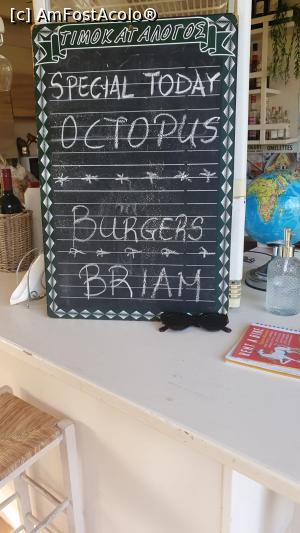 [c] © AmFostAcolo®
ΤΙΜΟΚΑΤΑΛΟΓΟΣ
SPECIAL TODAY
OCTOPUS
BURGERS
BRIAM
OMELETTES
RENT A BIKE